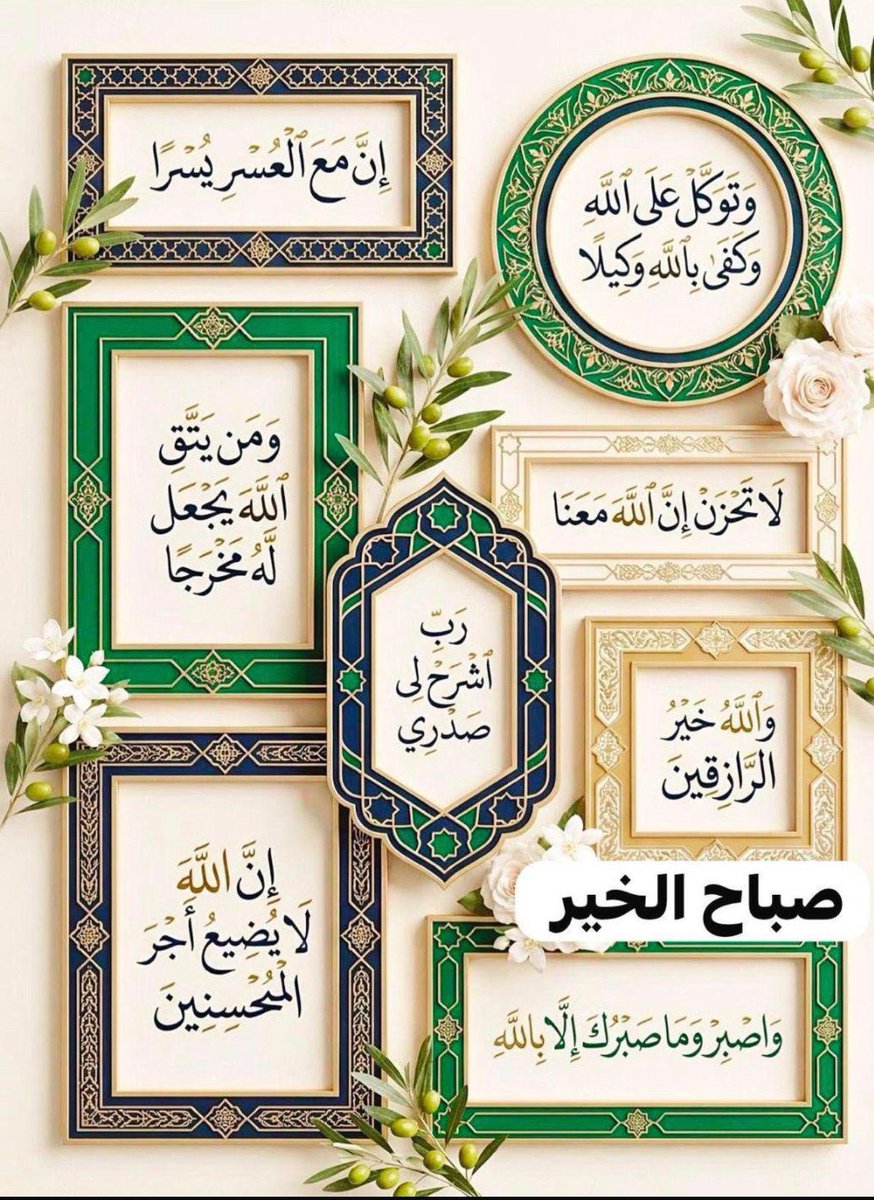 إِنَّ مَعَ ٱلْعُسْرِ يُسْرًا
وَتَوَكَّلْ عَلَى ٱللَّهِ
وَكَفَىٰ بِٱللَّهِ وَكِيلًا
وَمَن يَتَّقِ
ٱللَّهَ يَجْعَل
لَّهُ مَخْرَجًا
لَا تَحْزَنْ إِنَّ ٱللَّهَ مَعَنَا
رَبِّ
ٱشْرَحْ لِى
صَدْرِي
وَٱللَّهُ خَيْرُ
الرَّازِقِينَ
إِنَّ اللَّهَ
لَا يُضِيعُ أَجْرَ
الْمُحْسِنِينَ
صباح الخير
وَاصْبِرْ وَمَا صَبْرُكَ إِلَّا بِاللَّهِ